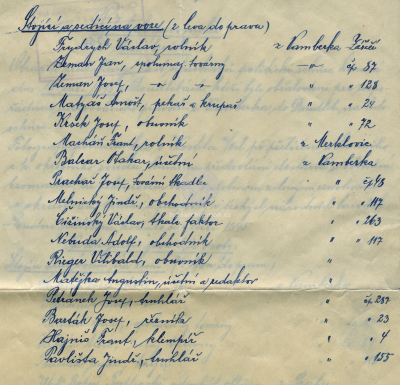 Stojící a sedící na voze (z leva do prava)
Frydrych Václav, rolník z Vamberka
Zeman Jan, spolumaj. továrny —"— čp 87
Zeman Josef, —"— —"— " " 128
Matyáš Arnošt, pekař a krupař " " 24
Kršek Josef, obuvník " " 72
Machań Frant, rolník z Merklovic
Balcar Otakar, účetní z Vamberka
Prachař Josef, tovární tkadlec " čp 48
Melnický Jindř, obchodník " " 117
Čižinský Václav, tkalc. faktor " " 263
Nebuda Adolf, obchodník " " 117
Rieger Vilibald, obuvník "
Matějka Augustin, účetní a redaktor "
Petránek Josef, truhlář " čp 287
Barták Josef, řezník " " 23
Hajniš Frant, klempíř " " 4
Pavlišta Jindř, truhlář " " 155